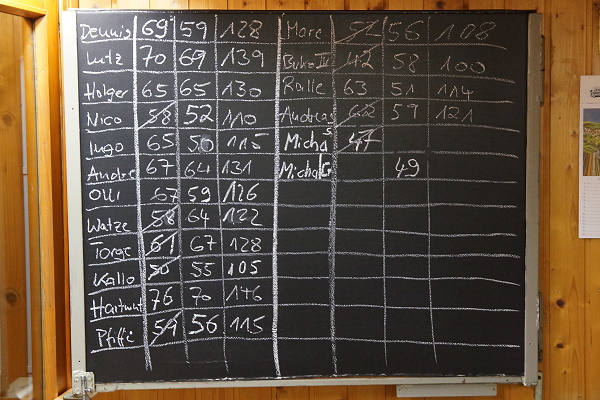 Dennis 69 59 128 Marc 52 56 108
Lutz 70 69 139 42 58 100
Holger 65 65 130 Ralle 63 51 114
Nico 58 52 110 Andreas 62 59 121
Ingo 65 50 115 Micha S 47
Andre 67 64 131 Micha G 49
Olli 67 59 126
Watze 58 64 122
Torge 61 67 128
Kallo 50 55 105
Hartmut 76 70 146
Piffi 59 56 115